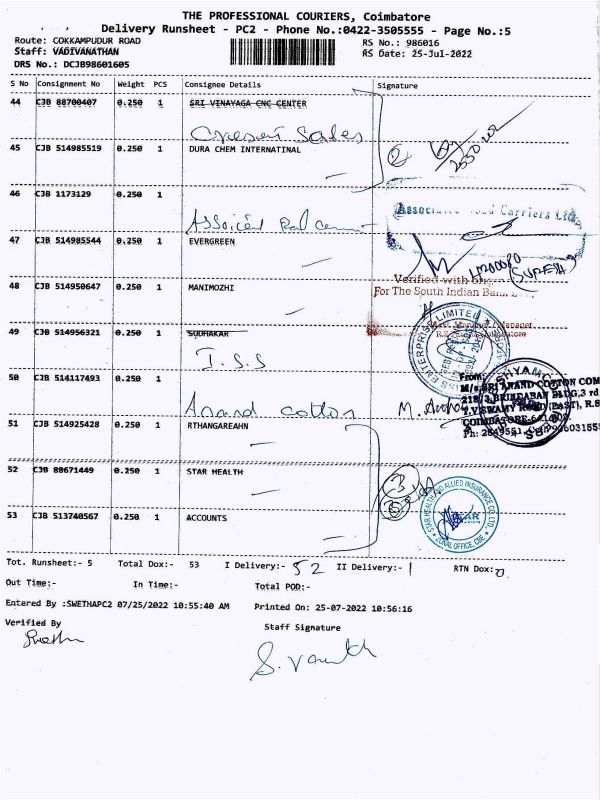 THE PROFESSIONAL COURIERS, Coimbatore
Delivery Runsheet - PC2 - Phone No.:0422-3505555 - Page No.:5
Route: COKKAMPUDUR ROAD
RS No.: 986016
Staff: VADIVANATHAN
RS Date: 25-Jul-2022
DRS No.: DCJB98601605
S No Consignment No Weight PCS Consignee Details Signature
44 CJB 88700407 0.250 1 SRI VINAYAGA CNC CENTER
Sales
45 CJB 514985519 0.250 1 DURA CHEM INTERNATINAL
46 CJB 1173129 0.250 1
Associated Road Carriers Ltd
47 CJB 514985544 0.250 1 EVERGREEN
SURESH
48 CJB 514950647 0.250 1 MANIMOZHI
Verified with
For The South Indian Bank
49 CJB 514956321 0.250 1 SUDHAKAR
Manager
ENTERPRISE LIMITED
I.S.S
50 CJB 514117493 0.250 1
From:
M/s. SRI ANAND COTTON COM
218/3, BRINDABAN BLDG, 3 rd
T.V. SWAMY ROAD (EAST), R.S
COIMBATORE-641 002.
Anand cotton
51 CJB 514925428 0.250 1 RTHANGAREAHN
52 CJB 88671449 0.250 1 STAR HEALTH
STAR HEALTH AND ALLIED INSURANCE CO. LTD.
STAR
ZONAL OFFICE, CBE
53 CJB 513740567 0.250 1 ACCOUNTS
Tot. Runsheet:- 5 Total Dox:- 53 I Delivery:- 52 II Delivery:- 1 RTN Dox:0
Out Time:- In Time:- Total POD:-
Entered By :SWETHAPC2 07/25/2022 10:55:40 AM Printed On: 25-07-2022 10:56:16
Verified By
Staff Signature